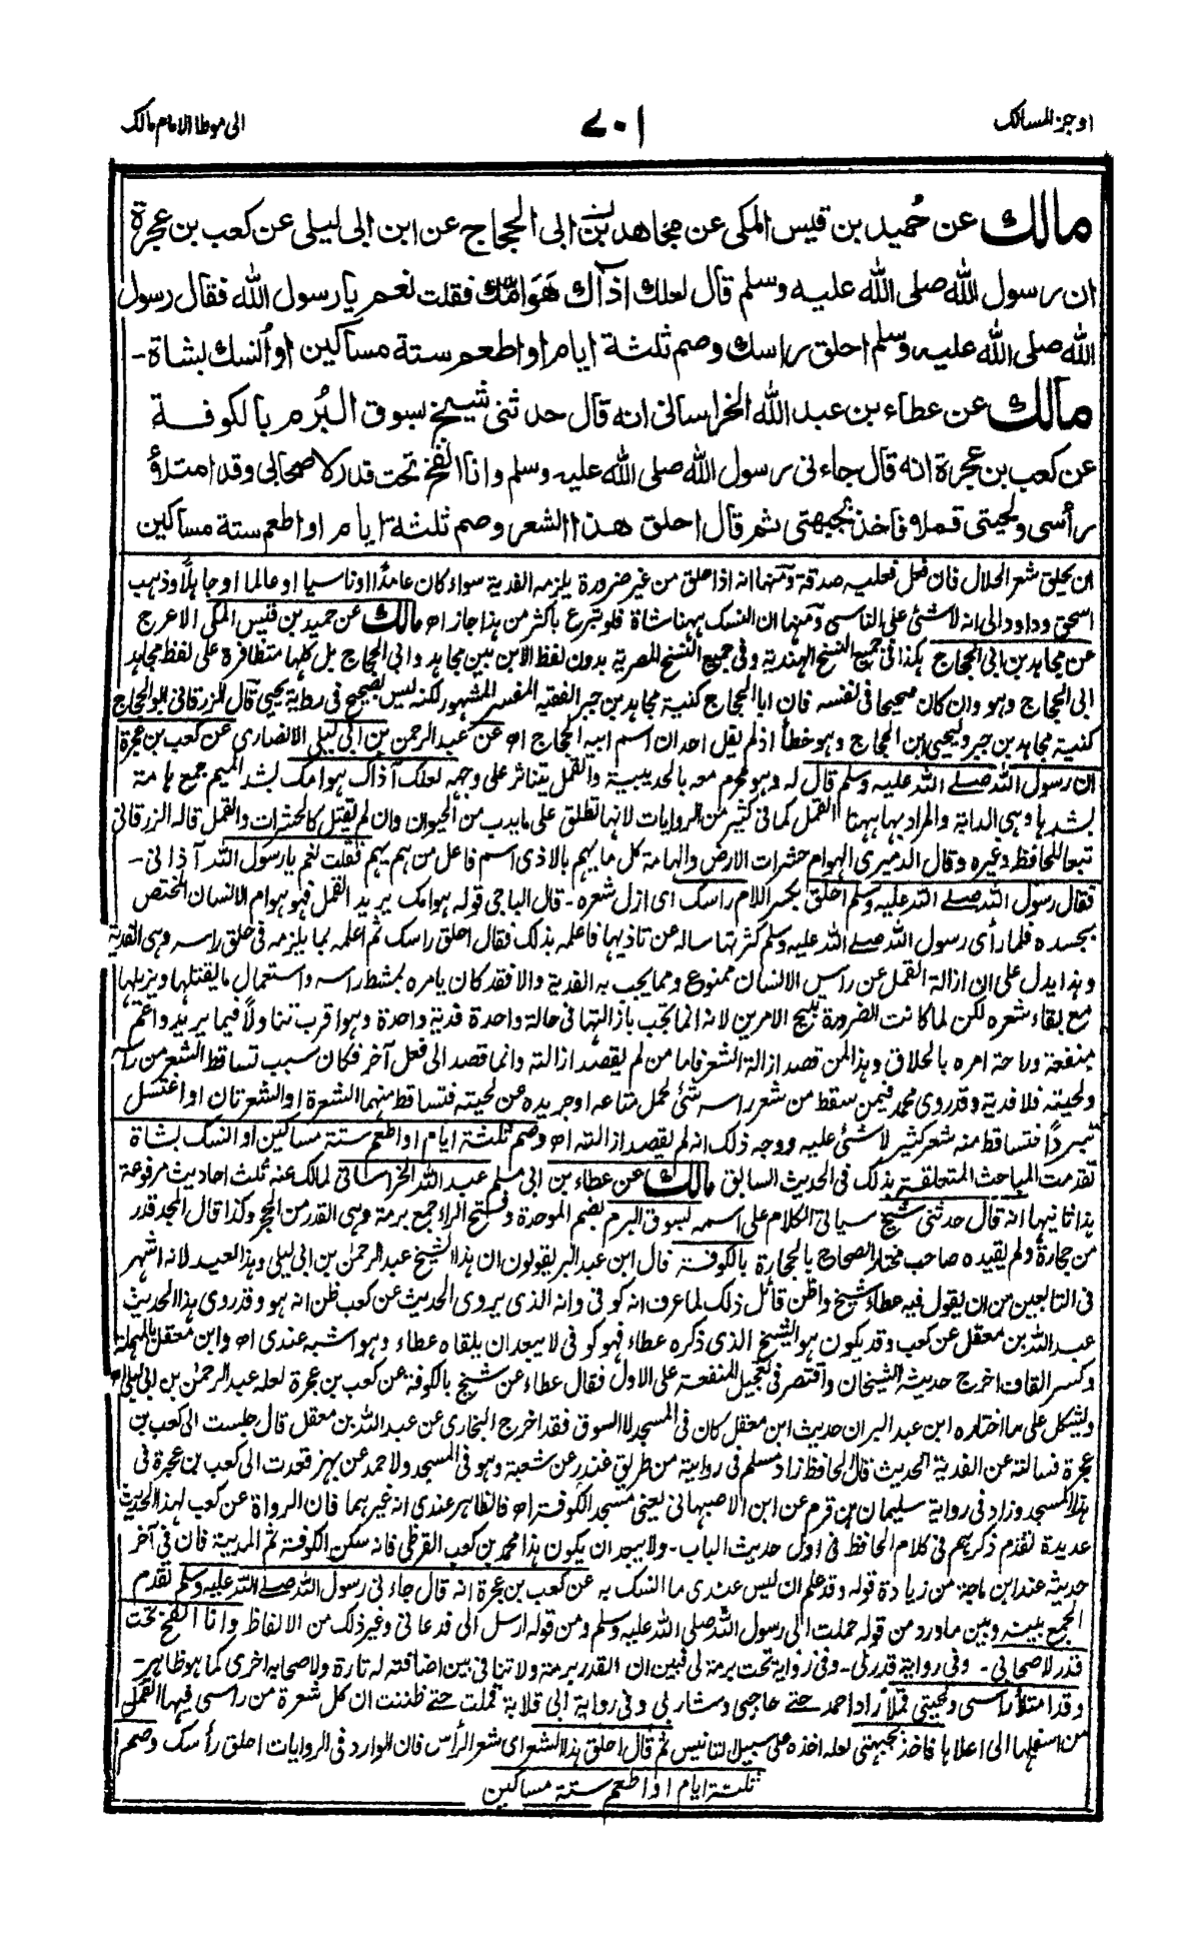 اوجز المسالک
٧٠١
الی موطا الامام مالک
مالك عن حُميد بن قيس المكى عن مجاهد بن ابى الحجاج عن ابن ابى ليلى عن كعب بن عجرة
ان رسول الله صلى الله عليه وسلم قال لعلك اذاك هَوَامُّك فقلت نعم يا رسول الله فقال رسول
الله صلى الله عليه وسلم احلق راسك وصم ثلثة ايام او اطعم ستة مساكين او اُنسك بشاة-
مالك عن عطاء بن عبد الله الخراسانى انه قال حدثنى شيخ بسوق البُرم بالكوفة
عن كعب بن عجرة انه قال جاءنى رسول الله صلى الله عليه وسلم وانا انفخ تحت قدر لاصحابى وقد امتلأ
رأسى ولحيتى قملا فاخذ بجبهتى ثم قال احلق هذا الشعر وصم ثلثة ايام او اطعم ستة مساكين
ان يحلق شعر الحلال فان فعل فعليه صدقة ومنها انه اذا حلق من غير ضرورة يلزمه الفدية سواء كان عامدًا او ناسيا او عالما او جاهلًا وذهب
اسحق وداود الى انه لا شئى على الناسى ومنها ان النسك ههنا شاة فلو تبرع باكثر من هذا جاز اه مالك عن حميد بن قيس المكى الاعرج
عن مجاهد بن ابى الحجاج هكذا فى جميع النسخ الهندية وفى جميع النسخ المصرية بدون لفظ الابن بين مجاهد وابى الحجاج بل كلها متظافرة على لفظ مجاهد
ابى الحجاج وهو وان كان صحيحا فى نفسه فان ابا الحجاج كنية مجاهد بن جبر الفقيه المفسر المشهور لكنه ليس بصحيح فى رواية يحيى قال الزرقانى ابو الحجاج
كنية مجاهد بن جبر وليحيى ابن الحجاج وهو خطأ اذ لم يقل احد ان اسم ابيه الحجاج اه عن عبد الرحمن بن ابى ليلى الانصارى عن كعب بن عجرة
ان رسول الله صلى الله عليه وسلم قال له وهو محرم معه بالحديبية والقمل يتناثر على وجهه لعلك آذاك هوامك بشد الميم جمع هامة
بشدها وهى الدابة والمراد بها ههنا القمل كما فى كثير من الروايات لانها تطلق على ما يدب من الحيوان وان لم يقتل كالحشرات والقمل قاله الزرقانى
تبعا للحافظ وغيره وقال الدميرى الهوام حشرات الارض والهامة كل ما يهم بالاذى اسم فاعل من هم يهم فقلت نعم يا رسول الله آذانى-
فقال رسول الله صلى الله عليه وسلم احلق بكسر اللام راسك اى ازل شعره- قال الباجى قوله هوامك يريد القمل فهو هوام الانسان المختص
بجسده فلما رأى رسول الله صلى الله عليه وسلم كثرتها ساله عن تاذيها فاعلمه بذلك فقال احلق راسك ثم اعلمه بما يلزمه فى حلق راسه وهى الفدية
وهذا يدل على ان ازالة القمل عن راس الانسان ممنوع ومما يجب به الفدية والا فقد كان يامره بمشط راسه واستعمال ما يقتلها ويزيلها
مع بقاء شعره لكن لما كانت الضرورة تبيح الامرين لانه انما تجب بازالتها فى حالة واحدة فدية واحدة وهو اقرب تناولًا فيما يريد واعم
منفعة وراحة امره بالحلاق وهذا لمن قصد ازالة الشعر فاما من لم يقصد ازالته وانما قصد الى فعل آخر فكان سبب تساقط الشعر من راسه
ولحيته فلا فدية وقد روى محمد فيمن سقط من شعر راسه شئ لحمل متاعه او جر يده عن لحيته فتساقط منهما الشعرة او الشعرتان او اغتسل
تبردًا فتساقط منه شعر كثير لا شئى عليه ووجه ذلك انه لم يقصد ازالته اه وصم ثلثة ايام او اطعم ستة مساكين او انسك بشاة
تقدمت المباحث المتعلقة بذلك فى الحديث السابق مالك عن عطاء بن ابى مسلم عبد الله الخراسانى لمالك عنه ثلث احاديث مرفوعة
هذا ثانيها انه قال حدثنى شيخ سياتى الكلام على اسمه بسوق البرم بضم الموحدة وفتح الراء جمع برمة وهى القدر من الحجر وكذا قال المجد قدر
من حجارة ولم يقيده صاحب مختار الصحاح بالحجارة بالكوفة قال ابن عبد البر يقولون ان هذا الشيخ عبد الرحمن بن ابى ليلى وهذا العبد لانه اشهر
فى التابعين من ان يقول فيه عطاء شيخ واظن قائل ذلك لما عرف انه كوفى وانه الذى يروى الحديث عن كعب ظن انه هو وقد روى هذا الحديث
عبد الله بن معقل عن كعب وقد يكون هو الشيخ الذى ذكره عطاء فهو كوفى لا يبعد ان يلقاه عطاء وهو اشبه عندى اه وابن معقل بالمهملة
وكسر القاف اخرج حديثه الشيخان واقتصر فى تعجيل المنفعة على الاول فقال عطاء عن شيخ بالكوفة عن كعب بن عجرة لعله عبد الرحمن بن ابى ليلى اه
ويشكل على ما اختاره ابن عبد البر ان حديث ابن معقل كان فى المسجد لا السوق فقد اخرج البخارى عن عبد الله بن معقل قال جلست الى كعب بن
عجرة فسالته عن الفدية الحديث قال الحافظ زاد مسلم فى رواية من طريق غندر عن شعبة وهو فى المسجد ولاحمد عن بهز قعدت الى كعب بن عجرة فى
هذا المسجد وزاد فى رواية سليمان بن قرم عن ابن الاصبهانى يعنى مسجد الكوفة اه فالظاهر عندى انه غيرهما فان الرواة عن كعب لهذا الحديث
عديدة تقدم ذكرهم فى كلام الحافظ فى اول حديث الباب- ولا يبعد ان يكون هذا محمد بن كعب القرظى فانه سكن الكوفة ثم المدينة فان فى آخر
حديثه عند ابن ماجة من زيادة قوله وقد علم ان ليس عندى ما انسك به عن كعب بن عجرة انه قال جاءنى رسول الله صلى الله عليه وسلم تقدم
الجمع بينه وبين ما ورد من قوله حملت الى رسول الله صلى الله عليه وسلم ومن قوله ارسل الى فدعانى وغير ذلك من الالفاظ وانا انفخ تحت
قدر لاصحابى- وفى رواية قدر لى- وفى رواية تحت برمة لى فبين ان القدر برمة ولا تنافى بين اضافته له تارة ولاصحابه اخرى كما هو ظاهر-
وقد امتلأ راسى ولحيتى قملًا زاد احمد حتى حاجبى وشاربى وفى رواية ابى قلابة قملت حتى ظننت ان كل شعرة من راسى فيها القمل
من اسفلها الى اعلاها فاخذ بجبهتى لعله اخذه على سبيل التانيس ثم قال احلق هذا الشعر اى شعر الرأس فان الوارد فى الروايات احلق رأسك وصم
ثلثة ايام او اطعم ستة مساكين